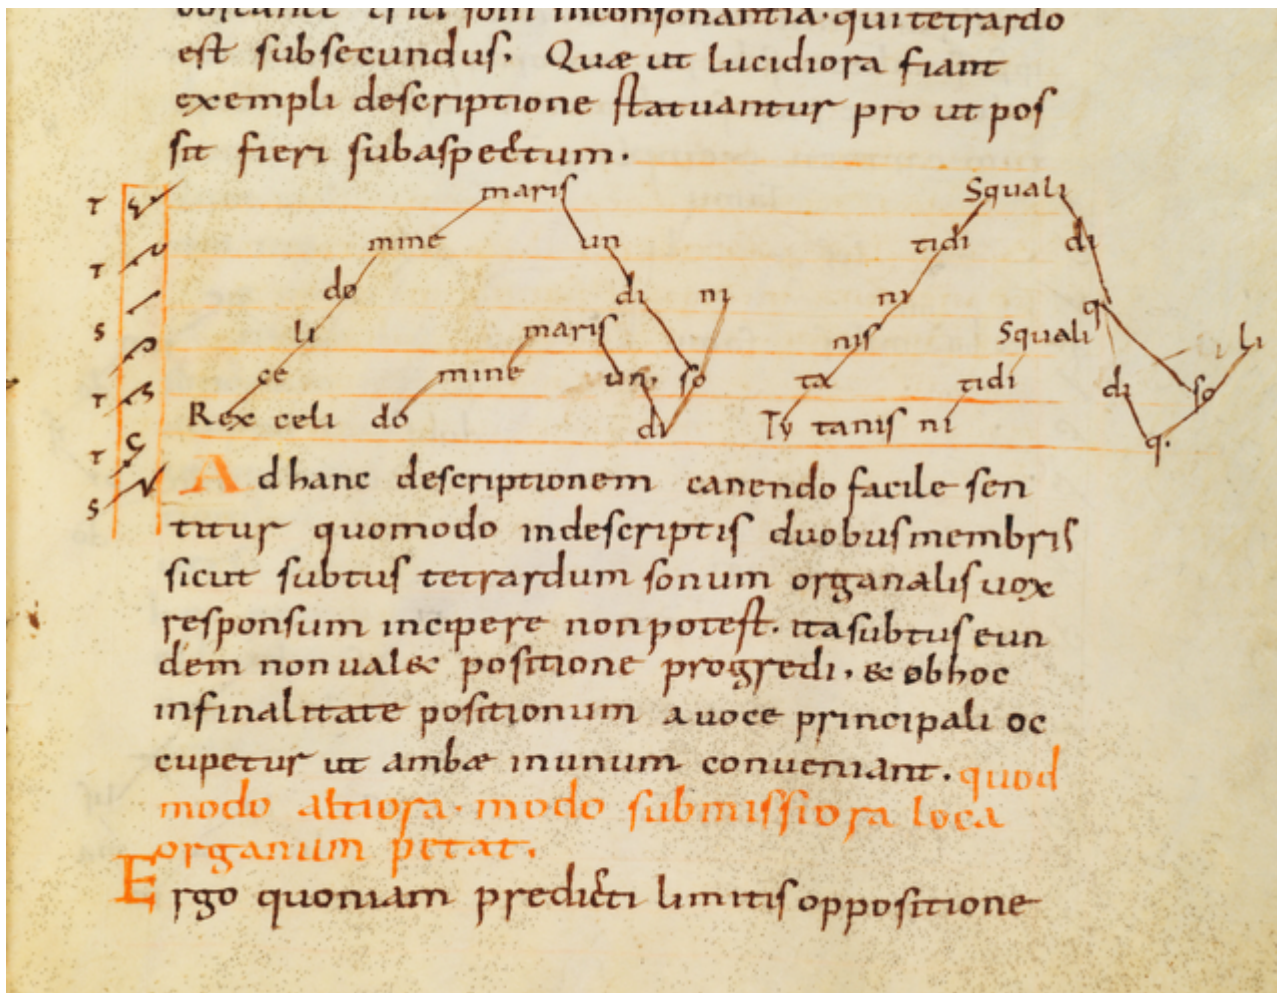 obstante trici soni inconsonantia · qui tetrardo
est subsecundus. Quæ ut lucidiora fiant
exempli descriptione statuantur pro ut pos
sit fieri sub aspectum.
T maris Squali
mine un tidi di
T do di ni ni q;
S li maris nis Squali li
T ce mine un, so ta tidi di so
T Rex celi do di Ty tanis ni q.
S
Ad hanc descriptionem canendo facile sen
titur quomodo in descriptis duobus membris
sicut subtus tetrardum sonum organalis vox
responsum incipere non potest. ita subtus eun
dem non ual& positione progredi. & ob hoc
in finalitate positionum a uoce principali oc
cupetur ut ambæ in unum conueniant. quod
modo altiora. modo submissiora loca
organum petat.
Ergo quoniam predicti limitis oppositione